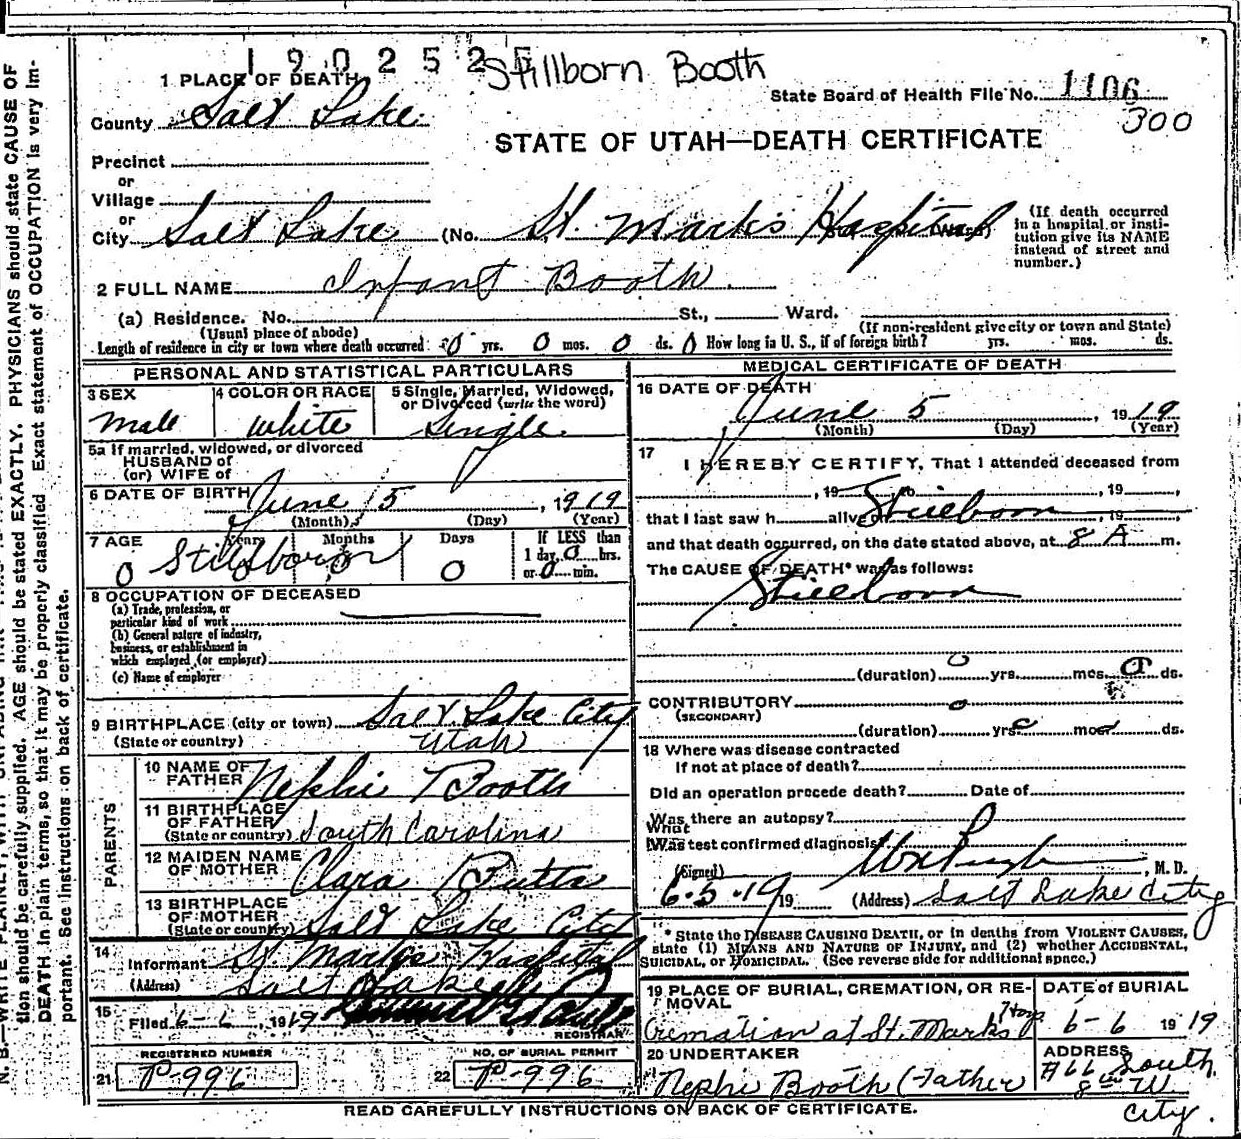 1902525
Stillborn Booth
1 PLACE OF DEATH
State Board of Health File No. 1106
County Salt Lake
300
STATE OF UTAH—DEATH CERTIFICATE
Precinct
or
Village
or
City Salt Lake (No. St. Marks Hospital
(If death occurred in a hospital or insti-
tution give its NAME
instead of street and
number.)
2 FULL NAME Infant Booth
(a) Residence. No. St., Ward.
(Usual place of abode) (If non-resident give city or town and State)
Length of residence in city or town where death occurred 0 yrs. 0 mos. 0 ds. 0 How long in U. S., if of foreign birth? yrs. mos. ds.
PERSONAL AND STATISTICAL PARTICULARS
3 SEX
male
4 COLOR OR RACE
white
5 Single, Married, Widowed,
or Divorced (write the word)
Single
5a If married, widowed, or divorced
HUSBAND of
(or) WIFE of
6 DATE OF BIRTH June 5, 1919
(Month) (Day) (Year)
7 AGE Years Months Days If LESS than
1 day, 0 hrs.
or 0 min.
0 Stillborn 0 0 0
8 OCCUPATION OF DECEASED
(a) Trade, profession, or
particular kind of work
(b) General nature of industry,
business, or establishment in
which employed (or employer)
(c) Name of employer
9 BIRTHPLACE (city or town) Salt Lake City
(State or country) Utah
PARENTS
10 NAME OF
FATHER Nephi Booth
11 BIRTHPLACE
OF FATHER
(State or country) South Carolina
12 MAIDEN NAME
OF MOTHER Clara Butts
13 BIRTHPLACE
OF MOTHER
(State or country) Salt Lake City
14
Informant St Marks Hospital
(Address) Salt Lake
15
Filed 6-6, 1919
REGISTRAR
REGISTERED NUMBER
21 P-996
NO. OF BURIAL PERMIT
22 P-996
MEDICAL CERTIFICATE OF DEATH
16 DATE OF DEATH
June 5, 1919
(Month) (Day) (Year)
17
I HEREBY CERTIFY, That I attended deceased from
, 19 to , 19 ,
that I last saw h alive on Stillborn , 19
and that death occurred, on the date stated above, at 8 A m.
The CAUSE OF DEATH* was as follows:
Stillborn
(duration) 0 yrs. mos. 0 ds.
CONTRIBUTORY 0
(SECONDARY)
(duration) yrs. 0 mos. 0 ds.
18 Where was disease contracted
If not at place of death?
Did an operation precede death? Date of
Was there an autopsy?
What
Was test confirmed diagnosis?
(Signed) , M. D.
6-5-19 19 (Address) Salt Lake City
* State the DISEASE CAUSING DEATH, or in deaths from VIOLENT CAUSES,
state (1) MEANS AND NATURE OF INJURY, and (2) whether ACCIDENTAL,
SUICIDAL, or HOMICIDAL. (See reverse side for additional space.)
19 PLACE OF BURIAL, CREMATION, OR RE-
MOVAL
Cremation at St. Marks Hosp
DATE of BURIAL
6-6 1919
20 UNDERTAKER
Nephi Booth (Father
ADDRESS
#66 South
8th W
City.
READ CAREFULLY INSTRUCTIONS ON BACK OF CERTIFICATE.
tion should be carefully supplied. AGE should be stated EXACTLY. PHYSICIANS should state CAUSE OF
DEATH in plain terms, so that it may be properly classified. Exact statement of OCCUPATION is very im-
portant. See instructions on back of certificate.